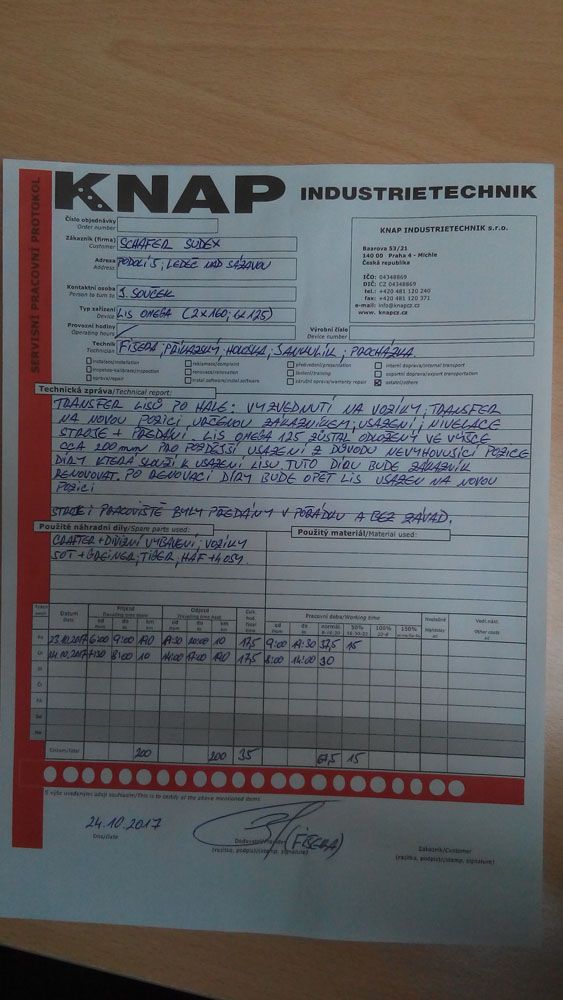 SERVISNÍ PRACOVNÍ PROTOKOL
KNAP INDUSTRIETECHNIK
Číslo objednávky
Order number
Zákazník (firma) SCHÄFER SUDEX
Customer
Adresa PODOLÍ 5, LEDEČ NAD SÁZAVOU
Address
Kontaktní osoba J. SOUČEK
Person to turn to
Typ zařízení LIS OMEGA (2x160, 1x125)
Device
Provozní hodiny
Operating hours
Výrobní číslo
Device number
KNAP INDUSTRIETECHNIK s.r.o.
Baarova 53/21
140 00 Praha 4 - Michle
Česká republika
IČO: 04348869
DIČ: CZ 04348869
tel.: +420 481 120 240
fax: +420 481 120 371
e-mail: info@knapcz.cz
www. knapcz.cz
Technik FIŠERA, PŘIKAZSKÝ, HOLOSKA, SAMKULÍK, PROCHÁZKA
Technician
instalace/installation reklamace/complaint předvedení/presentation interní doprava/internal transport
inspekce-kalibrace/inspection renovace/renovation školení/training exportní doprava/export transportation
oprava/repair instal software/instal software záruční oprava/warranty repair ostatní/others
Technická zpráva/Technical report:
TRANSFER LISŮ PO HALE: VYZVEDNUTÍ NA VOZÍKY, TRANSFER
NA NOVOU POZICI URČENOU ZÁKAZNÍKEM, USAZENÍ, NIVELACE
STROJE + PŘEDÁNÍ. LIS OMEGA 125 ZŮSTAL ODLOŽENÝ VE VÝŠCE
CCA 200mm PRO POZDĚJŠÍ USAZENÍ Z DŮVODU NEVYHOVUJÍCÍ POZICE
DÍRY KTERÁ SLOUŽÍ K USAZENÍ LISU. TUTO DÍRU BUDE ZÁKAZNÍK
RENOVOVAT. PO RENOVACI DÍRY BUDE OPĚT LIS USAZEN NA NOVOU
POZICI
STROJE I PRACOVIŠTĚ BYLY PŘEDÁNY V POŘÁDKU A BEZ ZÁVAD.
Použité náhradní díly/Spare parts used:
Použitý materiál/Material used:
CRAFTER + DIVIZNÍ VYBAVENÍ, VOZÍKY
SOT + GREINER, TIGER, HAF + 4 OSY
Datum Příjezd Odjezd Celk. hod. Pracovní doba/Working time Vedl. nákl.
Date Travelling time there Travelling time back Other costs
od do km od do km normal 50% 100% 150%
Po 23.10.2017 6:00 9:00 190 19:30 20:00 10 17,5 9:00 19:30 37,5 15
Út 24.10.2017 7:30 8:00 10 14:00 17:00 190 17,5 8:00 14:00 30
St
Čt
Pá
So
Ne
Celkem/Total 200 200 35 67,5 15
S výše uvedenými údaji souhlasím/This is to certify of the above mentioned items
24.10.2017
(FIŠERA)
Dne/date
Dodavatel/Vendor
(razítko, podpis)/(stamp, signature)
Zákazník/Customer
(razítko, podpis)/(stamp, signature)